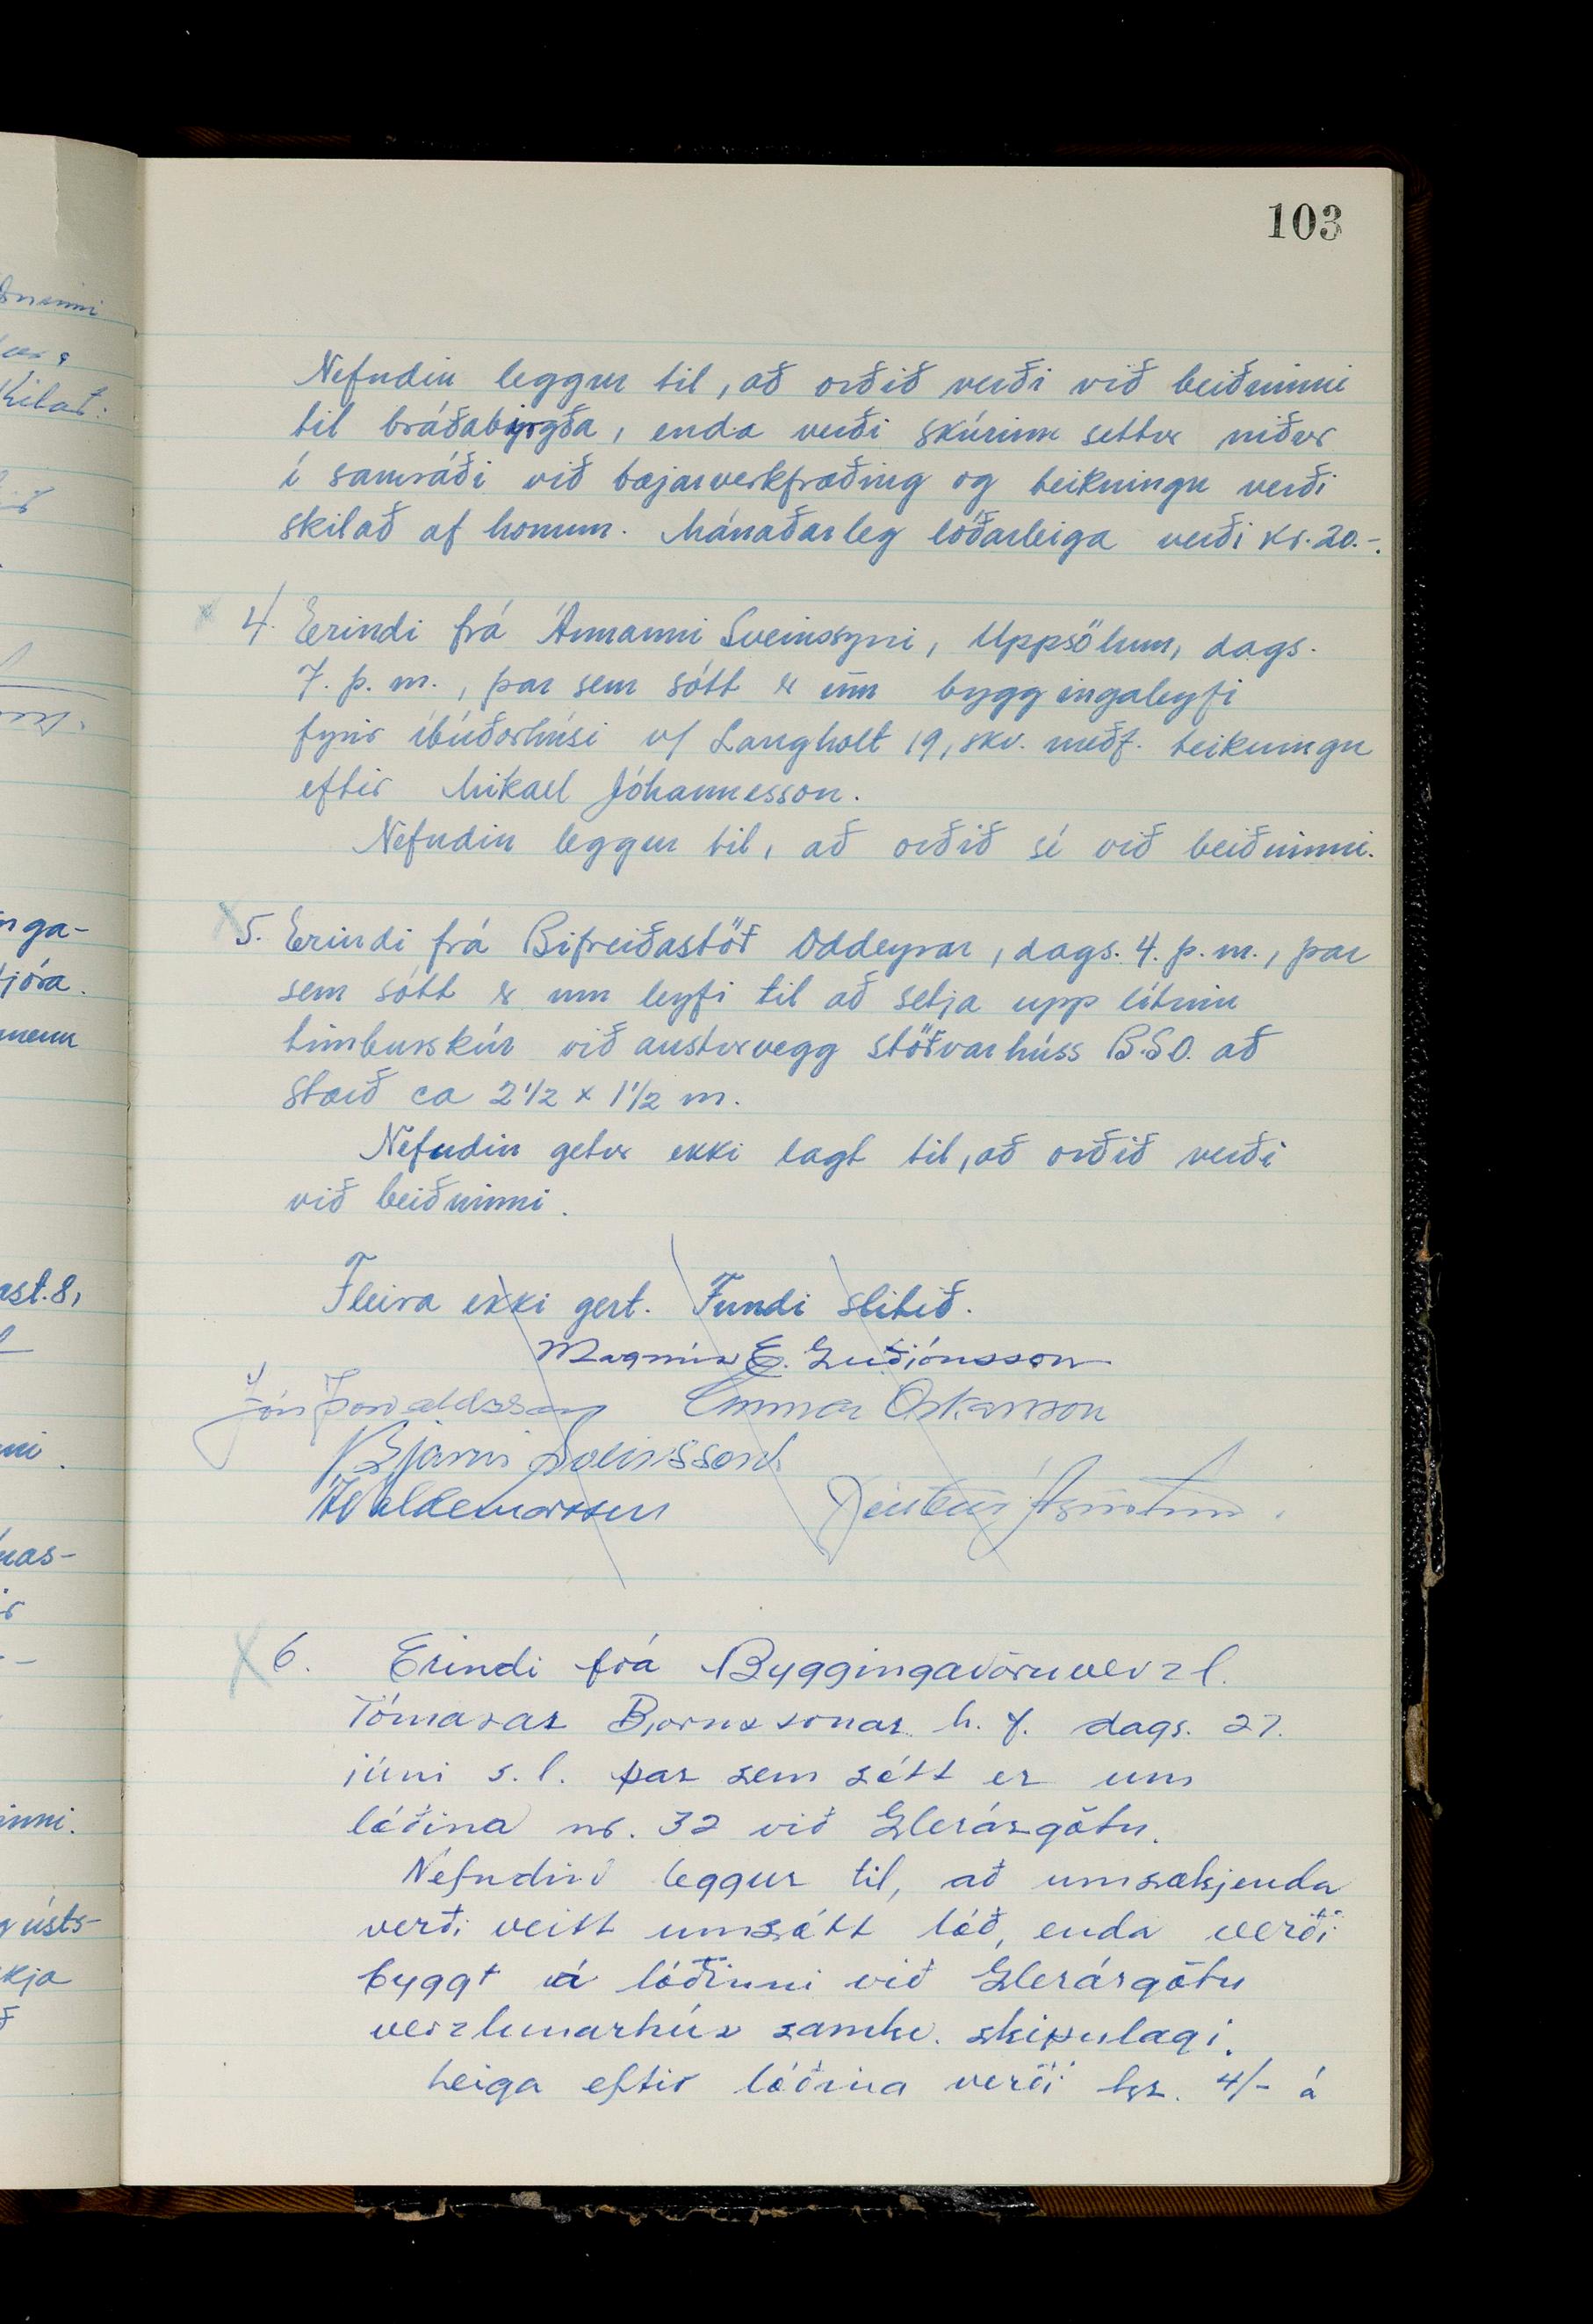 103
Nefndin leggur til, að orðið verði við beiðninni
til bráðabyrgða, enda verði skúrinn settur niður
í samráði við bæjarverkfræðing og teikningu verði
skilað af honum. Mánaðarleg lóðarleiga verði kr. 20.-.
4. Erindi frá Ármanni Sveinssyni, Uppsölum, dags.
7. þ. m., þar sem sótt er um byggingaleyfi
fyrir íbúðarhúsi v/ Langholt 19, skv. meðf. teikningu
eftir Mikael Jóhannesson.
Nefndin leggur til, að orðið sé við beiðninni.
5. Erindi frá Bifreiðastöð Oddeyrar, dags. 4. þ. m., þar
sem sótt er um leyfi til að setja upp lítinn
timburskúr við austurvegg stöðvarhúss B.S.O. að
stærð ca 2 1/2 x 1 1/2 m.
Nefndin getur ekki lagt til, að orðið verði
við beiðninni.
Fleira ekki gert. Fundi slitið.
Magnús E. Guðjónsson
Jón Þorvaldsson Gunnar Óskarsson
Bjarni Sveinsson
6. Erindi frá Byggingavöruverzl.
Tómasar Björnssonar h.f. dags. 27.
júní s.l. þar sem sótt er um
lóðina nr. 32 við Glerárgötu.
Nefndin leggur til, að umsækjenda
verði veitt umsótt lóð, enda verði
byggt á lóðinni við Glerárgötu
verzlunarhús samkv. skipulagi.
Leiga eftir lóðina verði kr. 4/- á